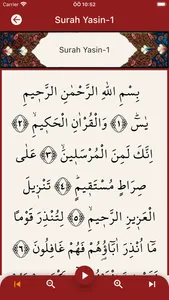 Carrier ÖÖ 10:52
Surah Yasin-1
Surah Yasin-1
بِسْمِ اللهِ الرَّحْمٰنِ الرَّحٖيمِ
يٰسٓ ﴿١﴾ وَالْقُرْاٰنِ الْحَكٖيمِ ﴿٢﴾
اِنَّكَ لَمِنَ الْمُرْسَلٖينَ ﴿٣﴾ عَلٰى
صِرَاطٍ مُسْتَقٖيمٍ ﴿٤﴾ تَنْزٖيلَ
الْعَزٖيزِ الرَّحٖيمِ ﴿٥﴾ لِتُنْذِرَ قَوْمًا
مَٓا اُنْذِرَ اٰبَٓاؤُ۬هُمْ فَهُمْ غَافِلُونَ ﴿٦﴾